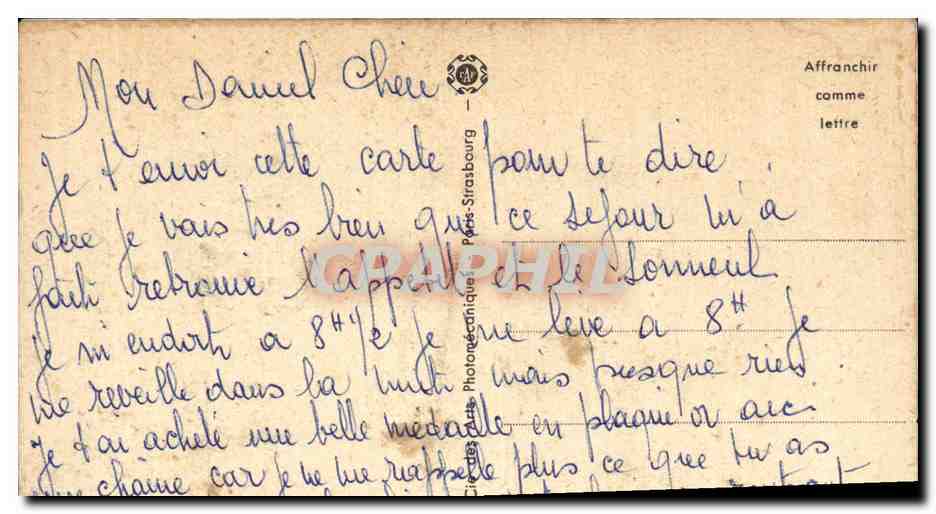 Mon Daniel Cheri
Affranchir
comme
lettre
Je t'envoi cette carte pour te dire
que je vais tres bien que ce sejour m'a
fait retrouve l'appetit et le sommeil
je m'endort a 8H 1/2 je me leve a 8H Je
me reveille dans la nuit mais presque rien
Je t'ai acheté une belle médaille en plaqué or avec
une chaine car je ne me rappelle plus ce que tu as
Cie des Arts Photomécaniques Paris-Strasbourg
CRAPHIL